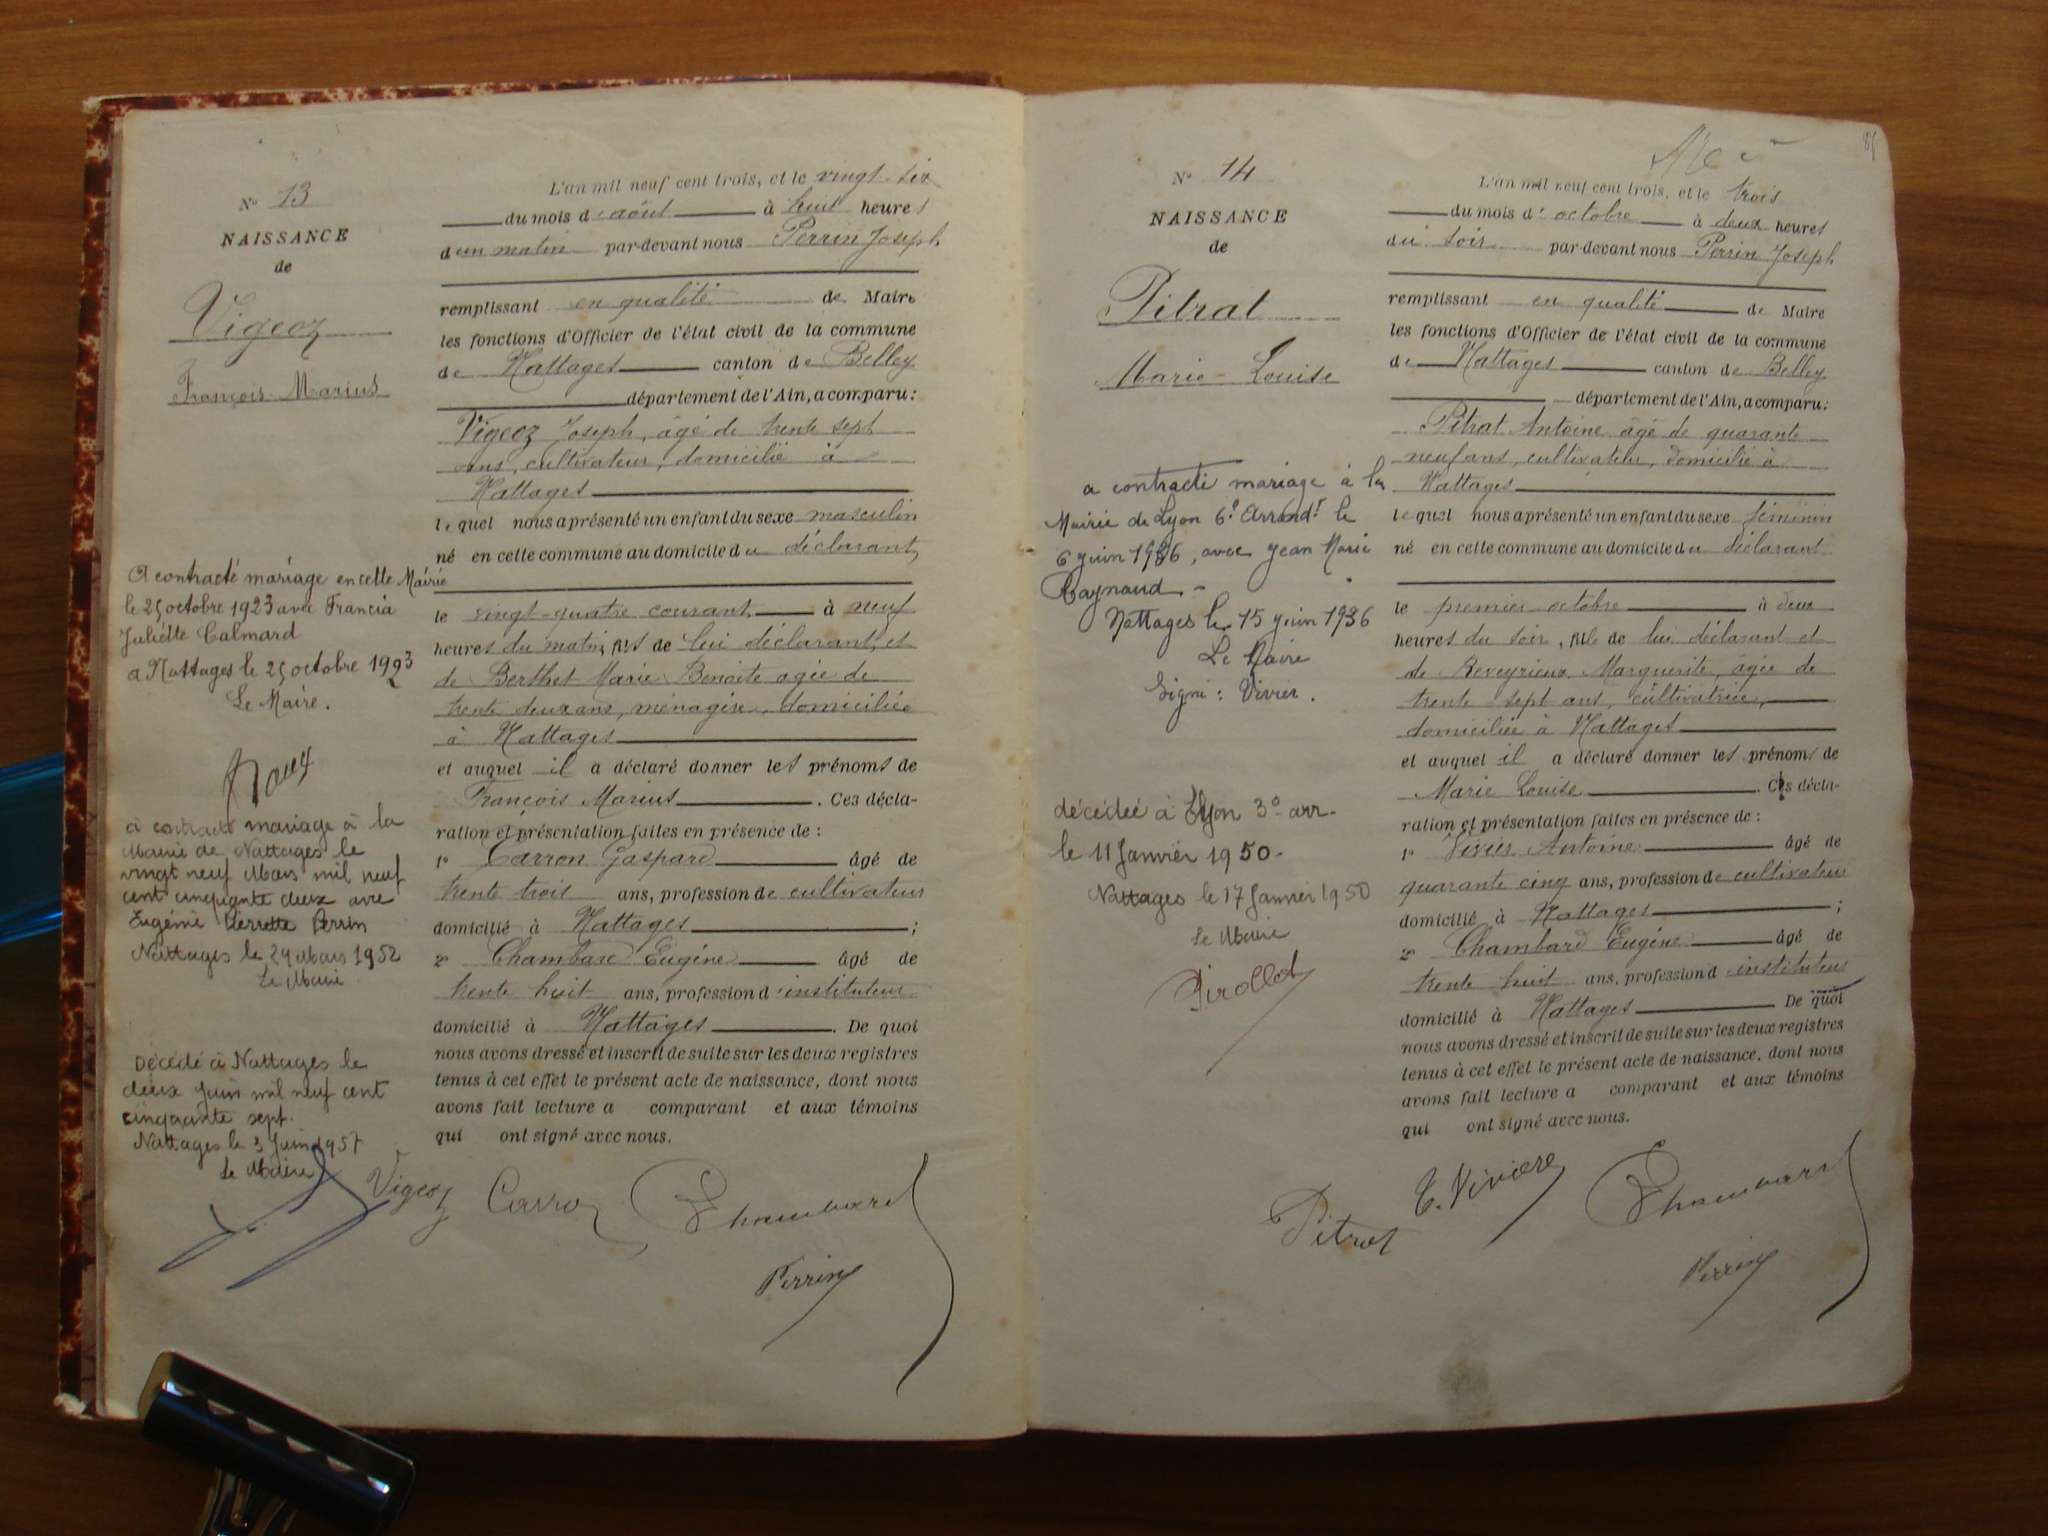 N° 13
NAISSANCE
de
Vigeoz
François Marius
A contracté mariage en cette Mairie
le 25 octobre 1923 avec Francia
Juliette Calmard
a Nattages le 25 octobre 1923
Le Maire.
a contracté mariage à la
Mairie de Nattages le
vingt neuf Mars mil neuf
cent cinquante deux avec
Eugénie Pierrette Perrin
Nattages le 29 Mars 1952
Le Maire
Décédé à Nattages le
deux Juin mil neuf cent
cinquante sept.
Nattages le 3 Juin 1957
Le Maire
L'an mil neuf cent trois, et le vingt-six
du mois d'août à huit heures
du matin par-devant nous Perrin Joseph
remplissant en qualité de Maire
les fonctions d'Officier de l'état civil de la commune
de Nattages canton de Belley
département de l'Ain, a comparu:
Vigeoz Joseph, âgé de trente sept
ans, cultivateur, domicilié à
Nattages
lequel nous a présenté un enfant du sexe masculin
né en cette commune au domicile du déclarant,
le vingt-quatre courant, à neuf
heures du matin, fils de lui déclarant, et
de Berthet Marie Benoite agée de
trente deux ans, ménagère, domiciliée
à Nattages
et auquel il a déclaré donner les prénoms de
François Marius. Ces décla-
ration et présentation faites en présence de :
1° Carron Gaspard âgé de
trente trois ans, profession de cultivateur
domicilié à Nattages ;
2° Chambard Eugène âgé de
trente huit ans, profession d'instituteur
domicilié à Nattages. De quoi
nous avons dressé et inscrit de suite sur les deux registres
tenus à cet effet le présent acte de naissance, dont nous
avons fait lecture a comparant et aux témoins
qui ont signé avec nous.
Vigeoz Carron Chambard
Perrin
85
N° 14
NAISSANCE
de
Pitrat
Marie-Louise
a contracté mariage à la
Mairie de Lyon 6e Arrondt le
6 juin 1936, avec Jean Marie
Raynaud -
Nattages le 15 juin 1936
Le Maire
Signé : Vivier.
décédée à Lyon 3° arr.
le 11 Janvier 1950.
Nattages le 17 Janvier 1950
Le Maire
Pirollet
L'an mil neuf cent trois, et le trois
du mois d'octobre à deux heures
du soir par-devant nous Perrin Joseph
remplissant en qualité de Maire
les fonctions d'Officier de l'état civil de la commune
de Nattages canton de Belley
département de l'Ain, a comparu:
Pitrat Antoine âgé de quarante
neuf ans, cultivateur, domicilié à
Nattages
lequel nous a présenté un enfant du sexe féminin
né en cette commune au domicile du déclarant
le premier octobre à deux
heures du soir, fille de lui déclarant et
de Reveyrieux Marguerite, âgée de
trente sept ans, cultivatrice,
domiciliée à Nattages
et auquel il a déclaré donner les prénoms de
Marie Louise. Ces décla-
ration et présentation faites en présence de :
1° Vivier Antoine âgé de
quarante cinq ans, profession de cultivateur
domicilié à Nattages ;
2° Chambard Eugène âgé de
trente huit ans, profession d'instituteur
domicilié à Nattages. De quoi
nous avons dressé et inscrit de suite sur les deux registres
tenus à cet effet le présent acte de naissance, dont nous
avons fait lecture a comparant et aux témoins
qui ont signé avec nous.
Pitrat Chambard
Perrin